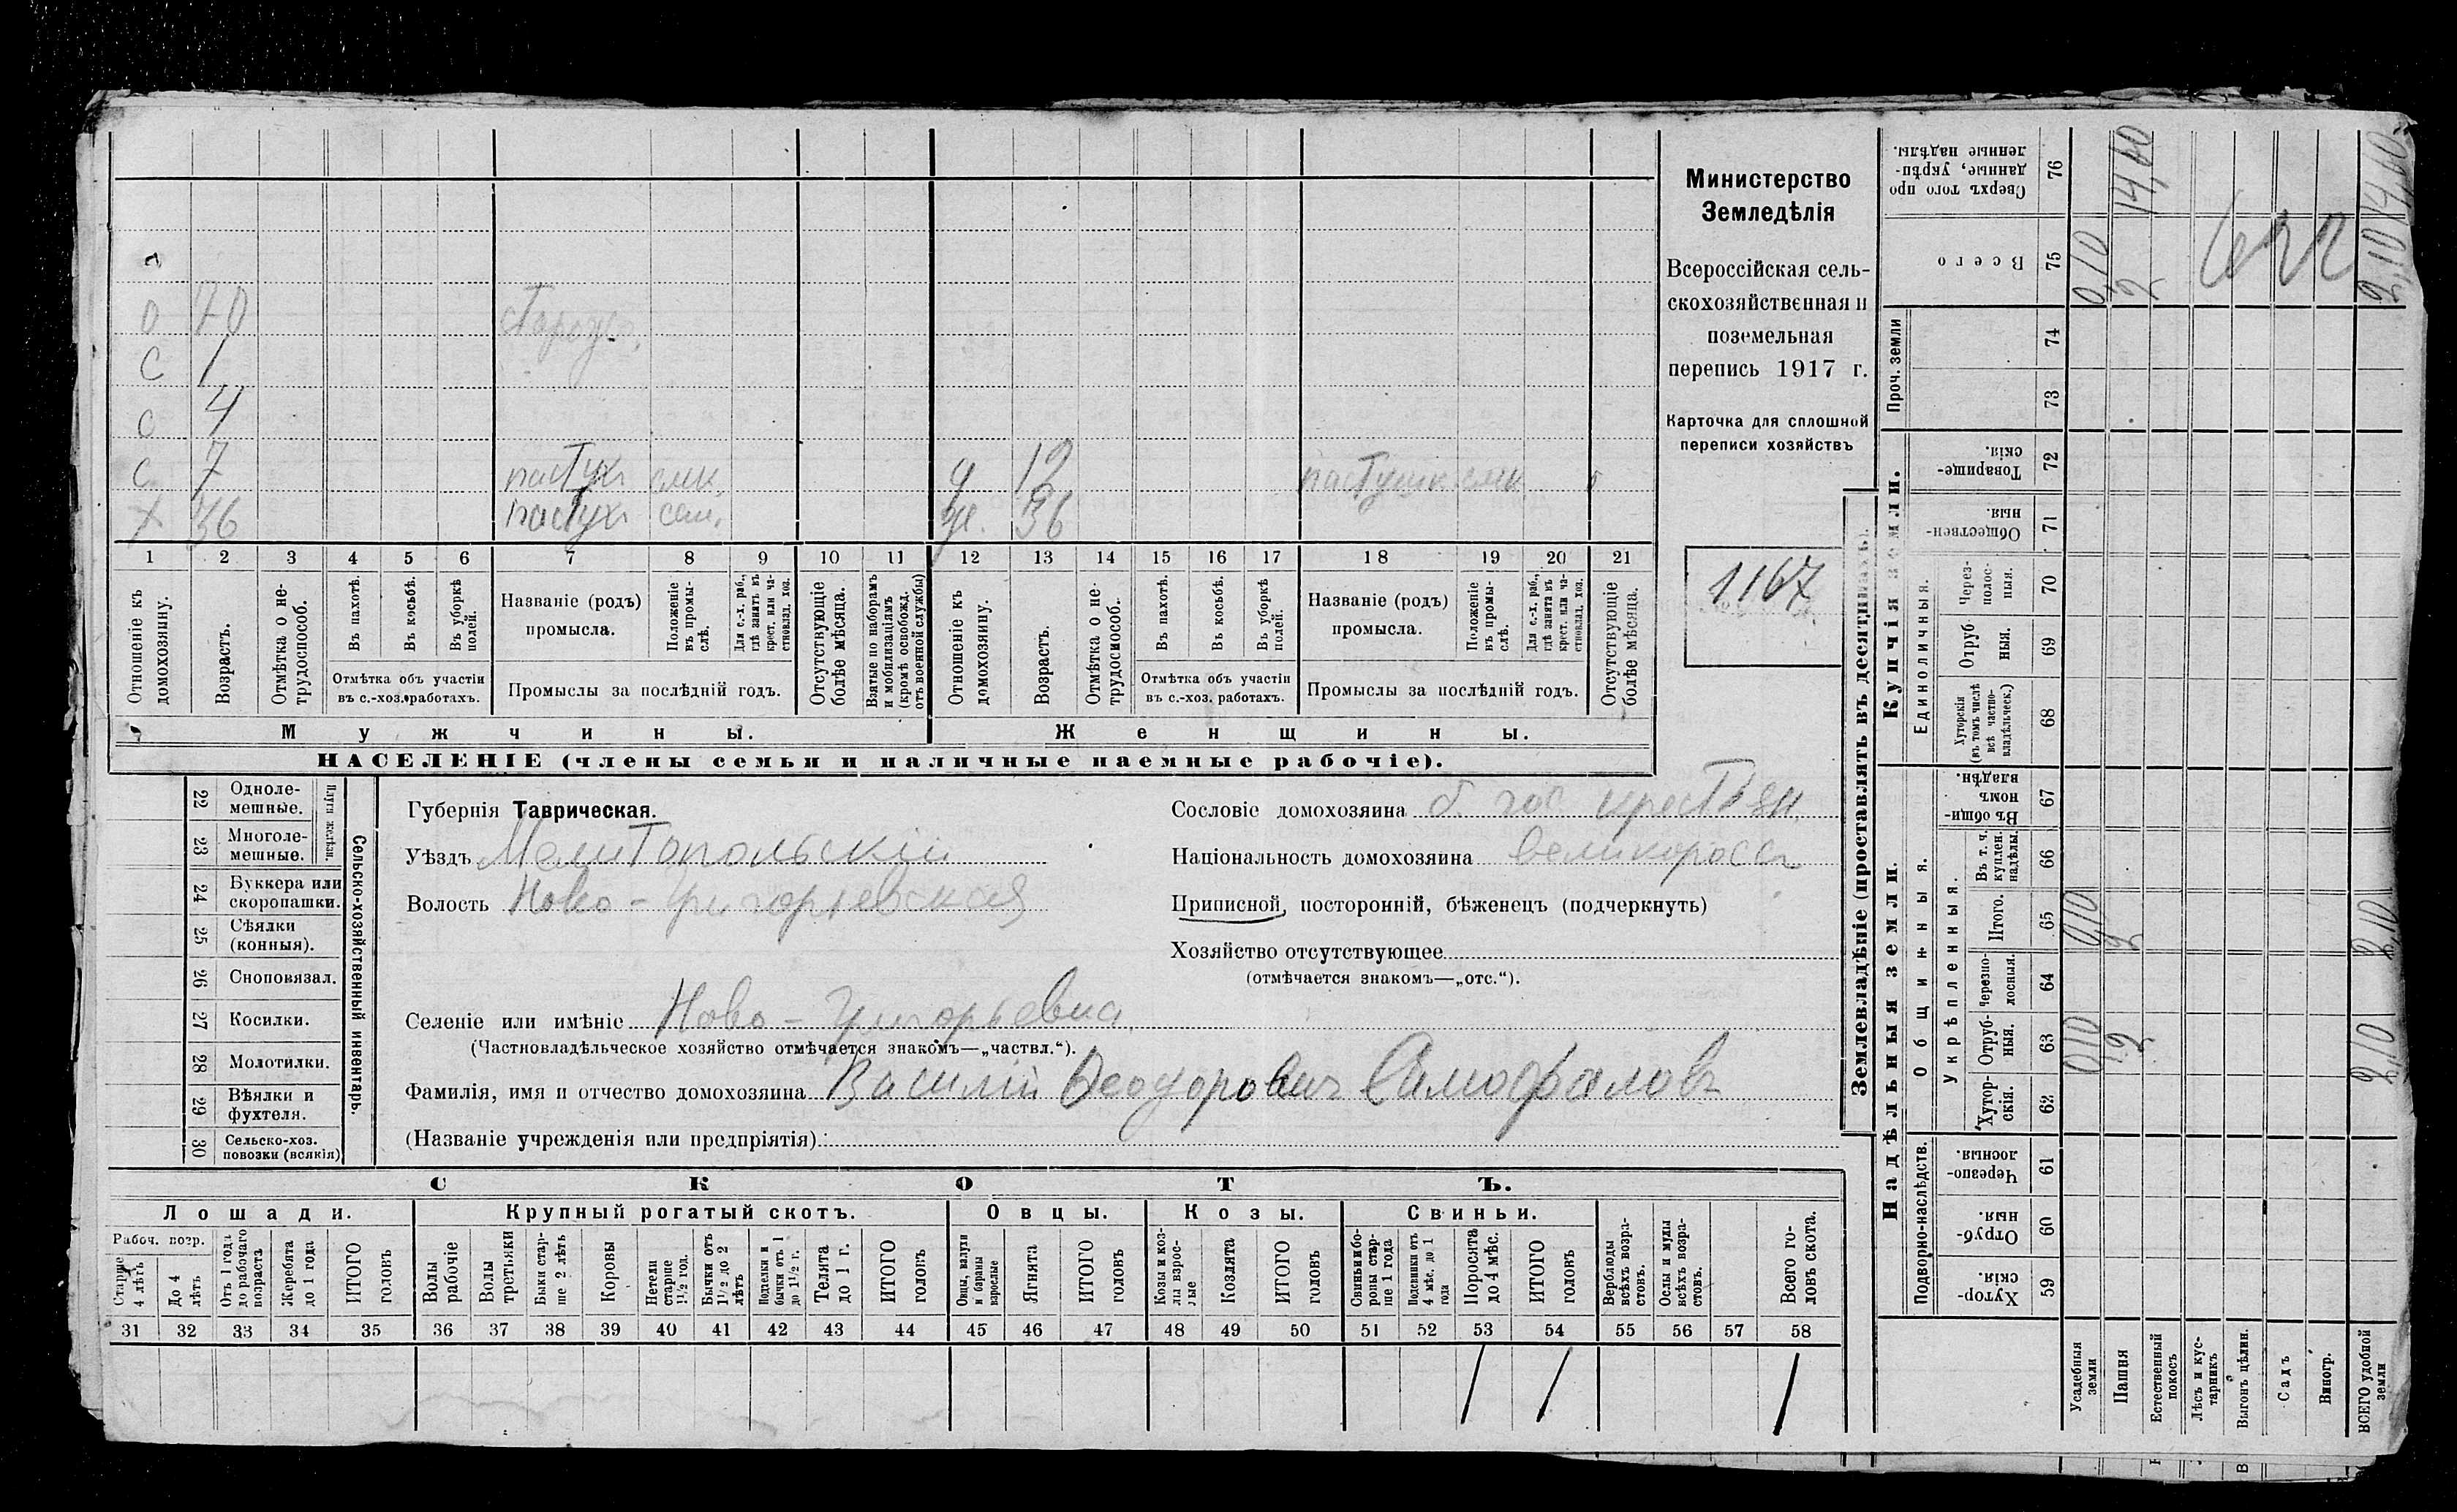 Министерство
Земледѣлія
Всероссійская сель-
скохозяйственная и
поземельная
перепись 1917 г.
Карточка для сплошной
переписи хозяйствъ
1167
О 70
С 1
С 4
С 7 пастухъ 12 пастушк
Х 36 пастухъ 36
1 2 3 4 5 6 7 8 9 10 11 12 13 14 15 16 17 18 19 20 21
Отношеніе къ домохозяину.
Возрастъ.
Отмѣтка о не-трудоспособ.
Въ пахотѣ.
Въ косьбѣ.
Въ уборкѣ полей.
Отмѣтка объ участіи
въ с.-хоз. работахъ.
Названіе (родъ)
промысла.
Положеніе въ промы-слѣ.
Для с.-х. раб., гдѣ занятъ въ крест. или ча-стновлад. хоз.
Промыслы за послѣдній годъ.
Отсутствующіе болѣе мѣсяца.
Взятые по наборамъ и мобилизаціямъ (кромѣ освобожд. отъ военной службы)
Отношеніе къ домохозяину.
Возрастъ.
Отмѣтка о не-трудоспособ.
Въ пахотѣ.
Въ косьбѣ.
Въ уборкѣ полей.
Отмѣтка объ участіи
въ с.-хоз. работахъ.
Названіе (родъ)
промысла.
Положеніе въ промы-слѣ.
Для с.-х. раб., гдѣ занята въ крест. или ча-стновлад. хоз.
Промыслы за послѣдній годъ.
Отсутствующіе болѣе мѣсяца.
Мужчины. Женщины.
НАСЕЛЕНІЕ (члены семьи и наличные наемные рабочіе).
Сельско-хозяйственный инвентарь.
Плуги желѣзн.
22 Одноле-мешные.
23 Многоле-мешные.
24 Буккера или скоропашки.
25 Сѣялки (конныя).
26 Сноповязал.
27 Косилки.
28 Молотилки.
29 Вѣялки и фухтеля.
30 Сельско-хоз. повозки (всякія)
Губернія Таврическая.
Уѣздъ Мелитопольскій
Волость Ново-Григорьевская
Сословіе домохозяина б. гос. крестьян.
Національность домохозяина великороссъ
Приписной, посторонній, бѣженецъ (подчеркнуть)
Хозяйство отсутствующее
(отмѣчается знакомъ—„отс.“).
Селеніе или имѣніе Ново-Григорьевка
(Частновладѣльческое хозяйство отмѣчается знакомъ—„частвл.“).
Фамилія, имя и отчество домохозяина Василій Ѳеодоровичъ Самофаловъ
(Названіе учрежденія или предпріятія)
СКОТЪ.
Лошади. Крупный рогатый скотъ. Овцы. Козы. Свиньи.
Рабоч. возр.
Старше 4 лѣтъ
До 4 лѣтъ
Отъ 1 года до рабочаго возраста
Жеребята до 1 года
ИТОГО головъ
Волы рабочіе
Волы третьяки
Быки стар-ше 2 лѣтъ
Коровы
Нетели старше 1½ год.
Бычки отъ 1½ до 2 лѣтъ
Подтелки и бычки отъ 1 до 1½ г.
Телята до 1 г.
ИТОГО головъ
Овцы, валухи и бараны взрослые
Ягнята
ИТОГО головъ
Козы и коз-лы взрос-лые
Козлята
ИТОГО головъ
Свиньи и бо-ровы стар-ше 1 года
Подсвинки отъ 4 мѣс. до 1 года
Поросята до 4 мѣс.
ИТОГО головъ
Верблюды всѣхъ возра-стовъ.
Ослы и мулы всѣхъ возра-стовъ.
Всего го-ловъ скота.
31 32 33 34 35 36 37 38 39 40 41 42 43 44 45 46 47 48 49 50 51 52 53 54 55 56 57 58
1 1 1
Землевладѣніе (проставлять въ десятинахъ).
Надѣльныя земли.
Купчія земли.
Проч. земли
Подворно-наслѣдств.
Общинныя.
Укрѣпленныя.
Единоличныя.
59 Хутор-скія.
60 Отруб-ныя.
61 Черезпо-лосныя.
62 Хутор-скія.
63 Отруб-ныя. 0,10 2 2,10
64 Черезпо-лосныя.
65 Итого. 0,10 2 2,10
66 Въ т. ч. куплен. надѣлы.
67 Въ общи-номъ владѣн.
68 Хуторскія (въ томъ числѣ всѣ частно-владѣльческ.)
69 Отруб-ныя.
70 Через-полос-ныя.
71 Обществен-ныя.
72 Товарище-скія.
73
74
75 Всего 0,10 2 2,10
76 Сверхъ того про-данные, укрѣп-ленные надѣлы. 14,60 14,60
Усадебныя земли
Пашня
Естественный покосъ
Лѣсъ и кус-тарникъ
Выгонъ цѣлин.
Садъ
Виногр.
ВСЕГО удобной земли